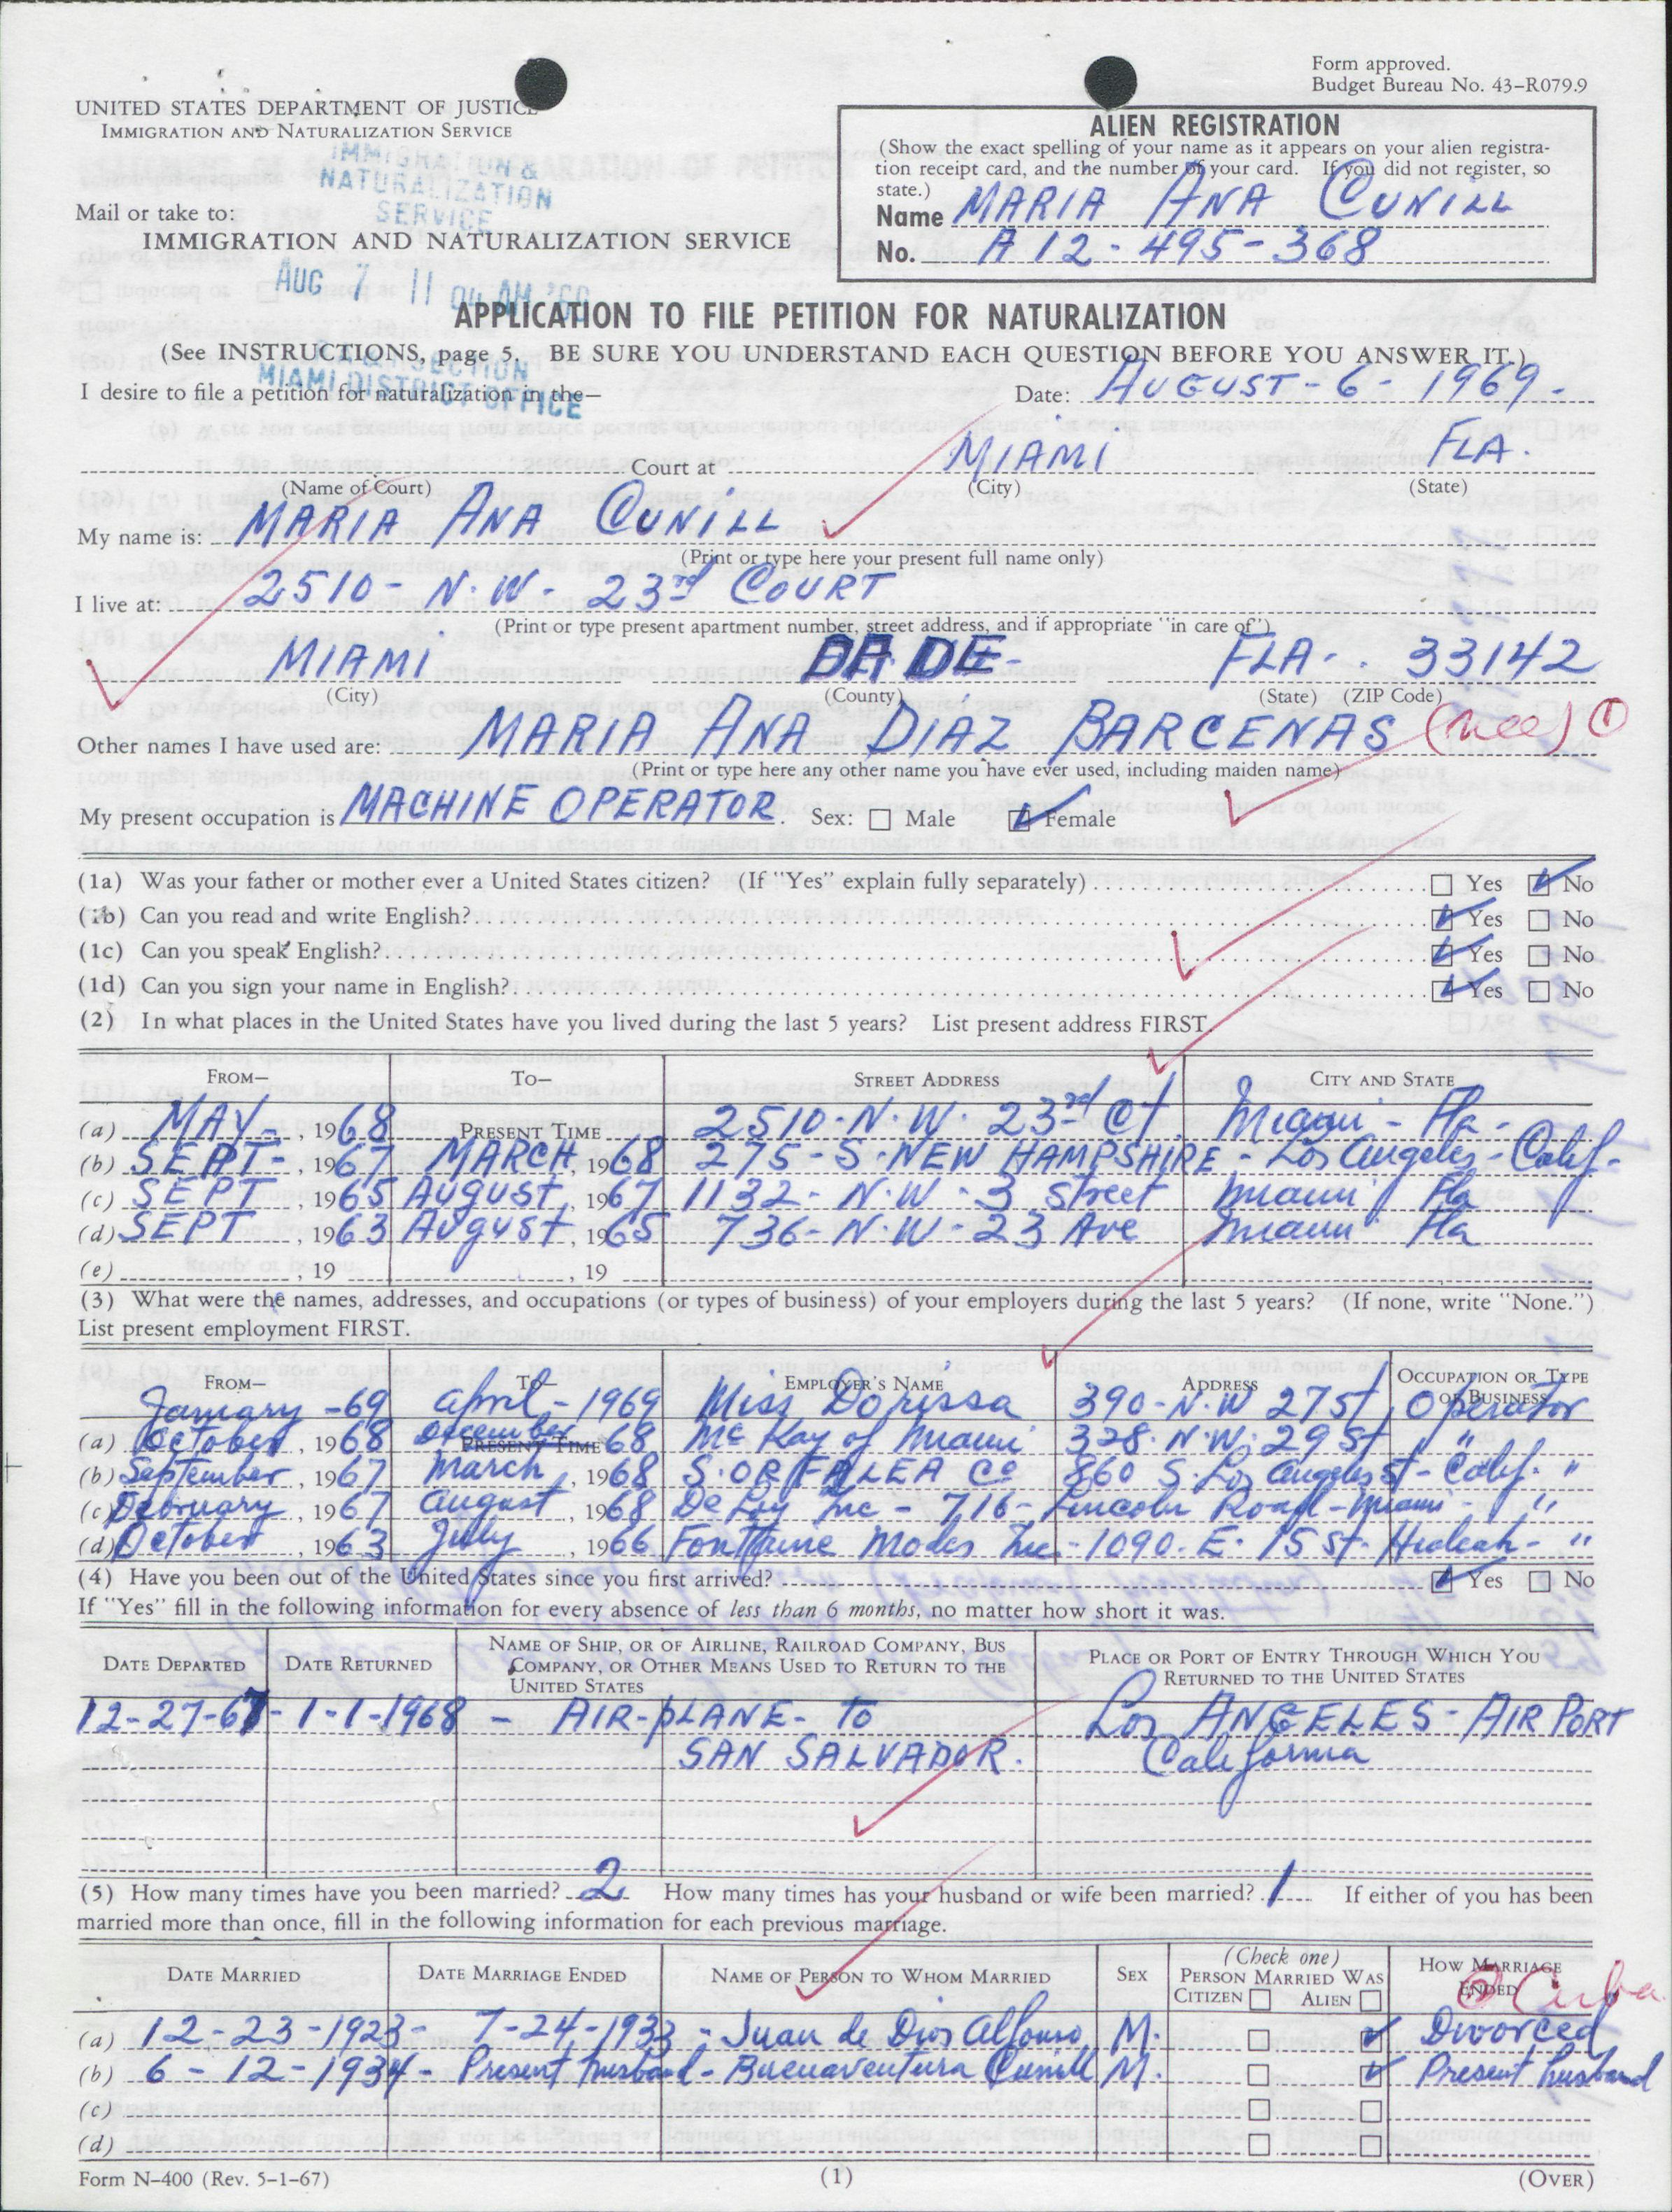 Form approved.
Budget Bureau No. 43-R079.9
UNITED STATES DEPARTMENT OF JUSTICE
IMMIGRATION AND NATURALIZATION SERVICE
IMMIGRATION &
NATURALIZATION
SERVICE
Mail or take to:
IMMIGRATION AND NATURALIZATION SERVICE
AUG 7 11 04 AM
ALIEN REGISTRATION
(Show the exact spelling of your name as it appears on your alien registra-
tion receipt card, and the number of your card. If you did not register, so
state.)
Name MARIA ANA CUNILL
No. A 12-495-368
APPLICATION TO FILE PETITION FOR NATURALIZATION
(See INSTRUCTIONS, page 5. BE SURE YOU UNDERSTAND EACH QUESTION BEFORE YOU ANSWER IT.)
SECTION
MIAMI DISTRICT OFFICE
I desire to file a petition for naturalization in the— Date: AUGUST-6-1969.
Court at MIAMI FLA.
(Name of Court) (City) (State)
My name is: MARIA ANA CUNILL
(Print or type here your present full name only)
I live at: 2510- N.W- 23rd COURT
(Print or type present apartment number, street address, and if appropriate "in care of")
MIAMI DADE- FLA-. 33142
(City) (County) (State) (ZIP Code)
Other names I have used are: MARIA ANA DIAZ BARCENAS (nee) 1
(Print or type here any other name you have ever used, including maiden name)
My present occupation is MACHINE OPERATOR. Sex: Male Female
(1a) Was your father or mother ever a United States citizen? (If "Yes" explain fully separately) Yes No
(1b) Can you read and write English? Yes No
(1c) Can you speak English? Yes No
(1d) Can you sign your name in English? Yes No
(2) In what places in the United States have you lived during the last 5 years? List present address FIRST.
FROM— TO— STREET ADDRESS CITY AND STATE
(a) MAY-, 1968 PRESENT TIME 2510-N.W. 23rd Ct. Miami - Fla-
(b) SEPT-, 1967 MARCH, 1968 275-S.NEW HAMPSHIRE-Los Angeles-Calif-
(c) SEPT, 1965 AUGUST, 1967 1132- N.W-3 Street Miami Fla
(d) SEPT, 1963 AUgUST, 1965 736-N.W-23 Ave Miami Fla
(e) , 19 , 19
(3) What were the names, addresses, and occupations (or types of business) of your employers during the last 5 years? (If none, write "None.")
List present employment FIRST.
FROM— TO— EMPLOYER'S NAME ADDRESS OCCUPATION OR TYPE OF BUSINESS
January -69 april-1969 Miss Dorissa 390-N.W 27St Operator
(a) October, 1968 December PRESENT TIME 68 Mc Kay of Miami 328.N.W. 29 St "
(b) September, 1967 March, 1968 S.ORFALEA Co 860 S.Los Angeles St-Calif. "
(c) February, 1967 August, 1968 De Inc - 716- Lincoln Road-Miami- "
(d) October, 1963 July, 1966 Fontaine Modes Inc-1090-E. 15 St- Hialeah- "
(4) Have you been out of the United States since you first arrived? Yes No
If "Yes" fill in the following information for every absence of less than 6 months, no matter how short it was.
DATE DEPARTED DATE RETURNED NAME OF SHIP, OR OF AIRLINE, RAILROAD COMPANY, BUS COMPANY, OR OTHER MEANS USED TO RETURN TO THE UNITED STATES PLACE OR PORT OF ENTRY THROUGH WHICH YOU RETURNED TO THE UNITED STATES
12-27-67-1-1-1968 - AIR-PLANE- TO Los ANGELES-AIRPORT
SAN SALVADOR. California
(5) How many times have you been married? 2 How many times has your husband or wife been married? 1 If either of you has been
married more than once, fill in the following information for each previous marriage.
DATE MARRIED DATE MARRIAGE ENDED NAME OF PERSON TO WHOM MARRIED SEX (Check one) PERSON MARRIED WAS CITIZEN ALIEN HOW MARRIAGE ENDED
2 Cuba
(a) 12-23-1923- 7-24-1933- Juan de Dios Alfonso M. Divorced
(b) 6-12-1934- Present husband- Buenaventura Cunill M. Present husband
(c)
(d)
Form N-400 (Rev. 5-1-67) (1) (OVER)